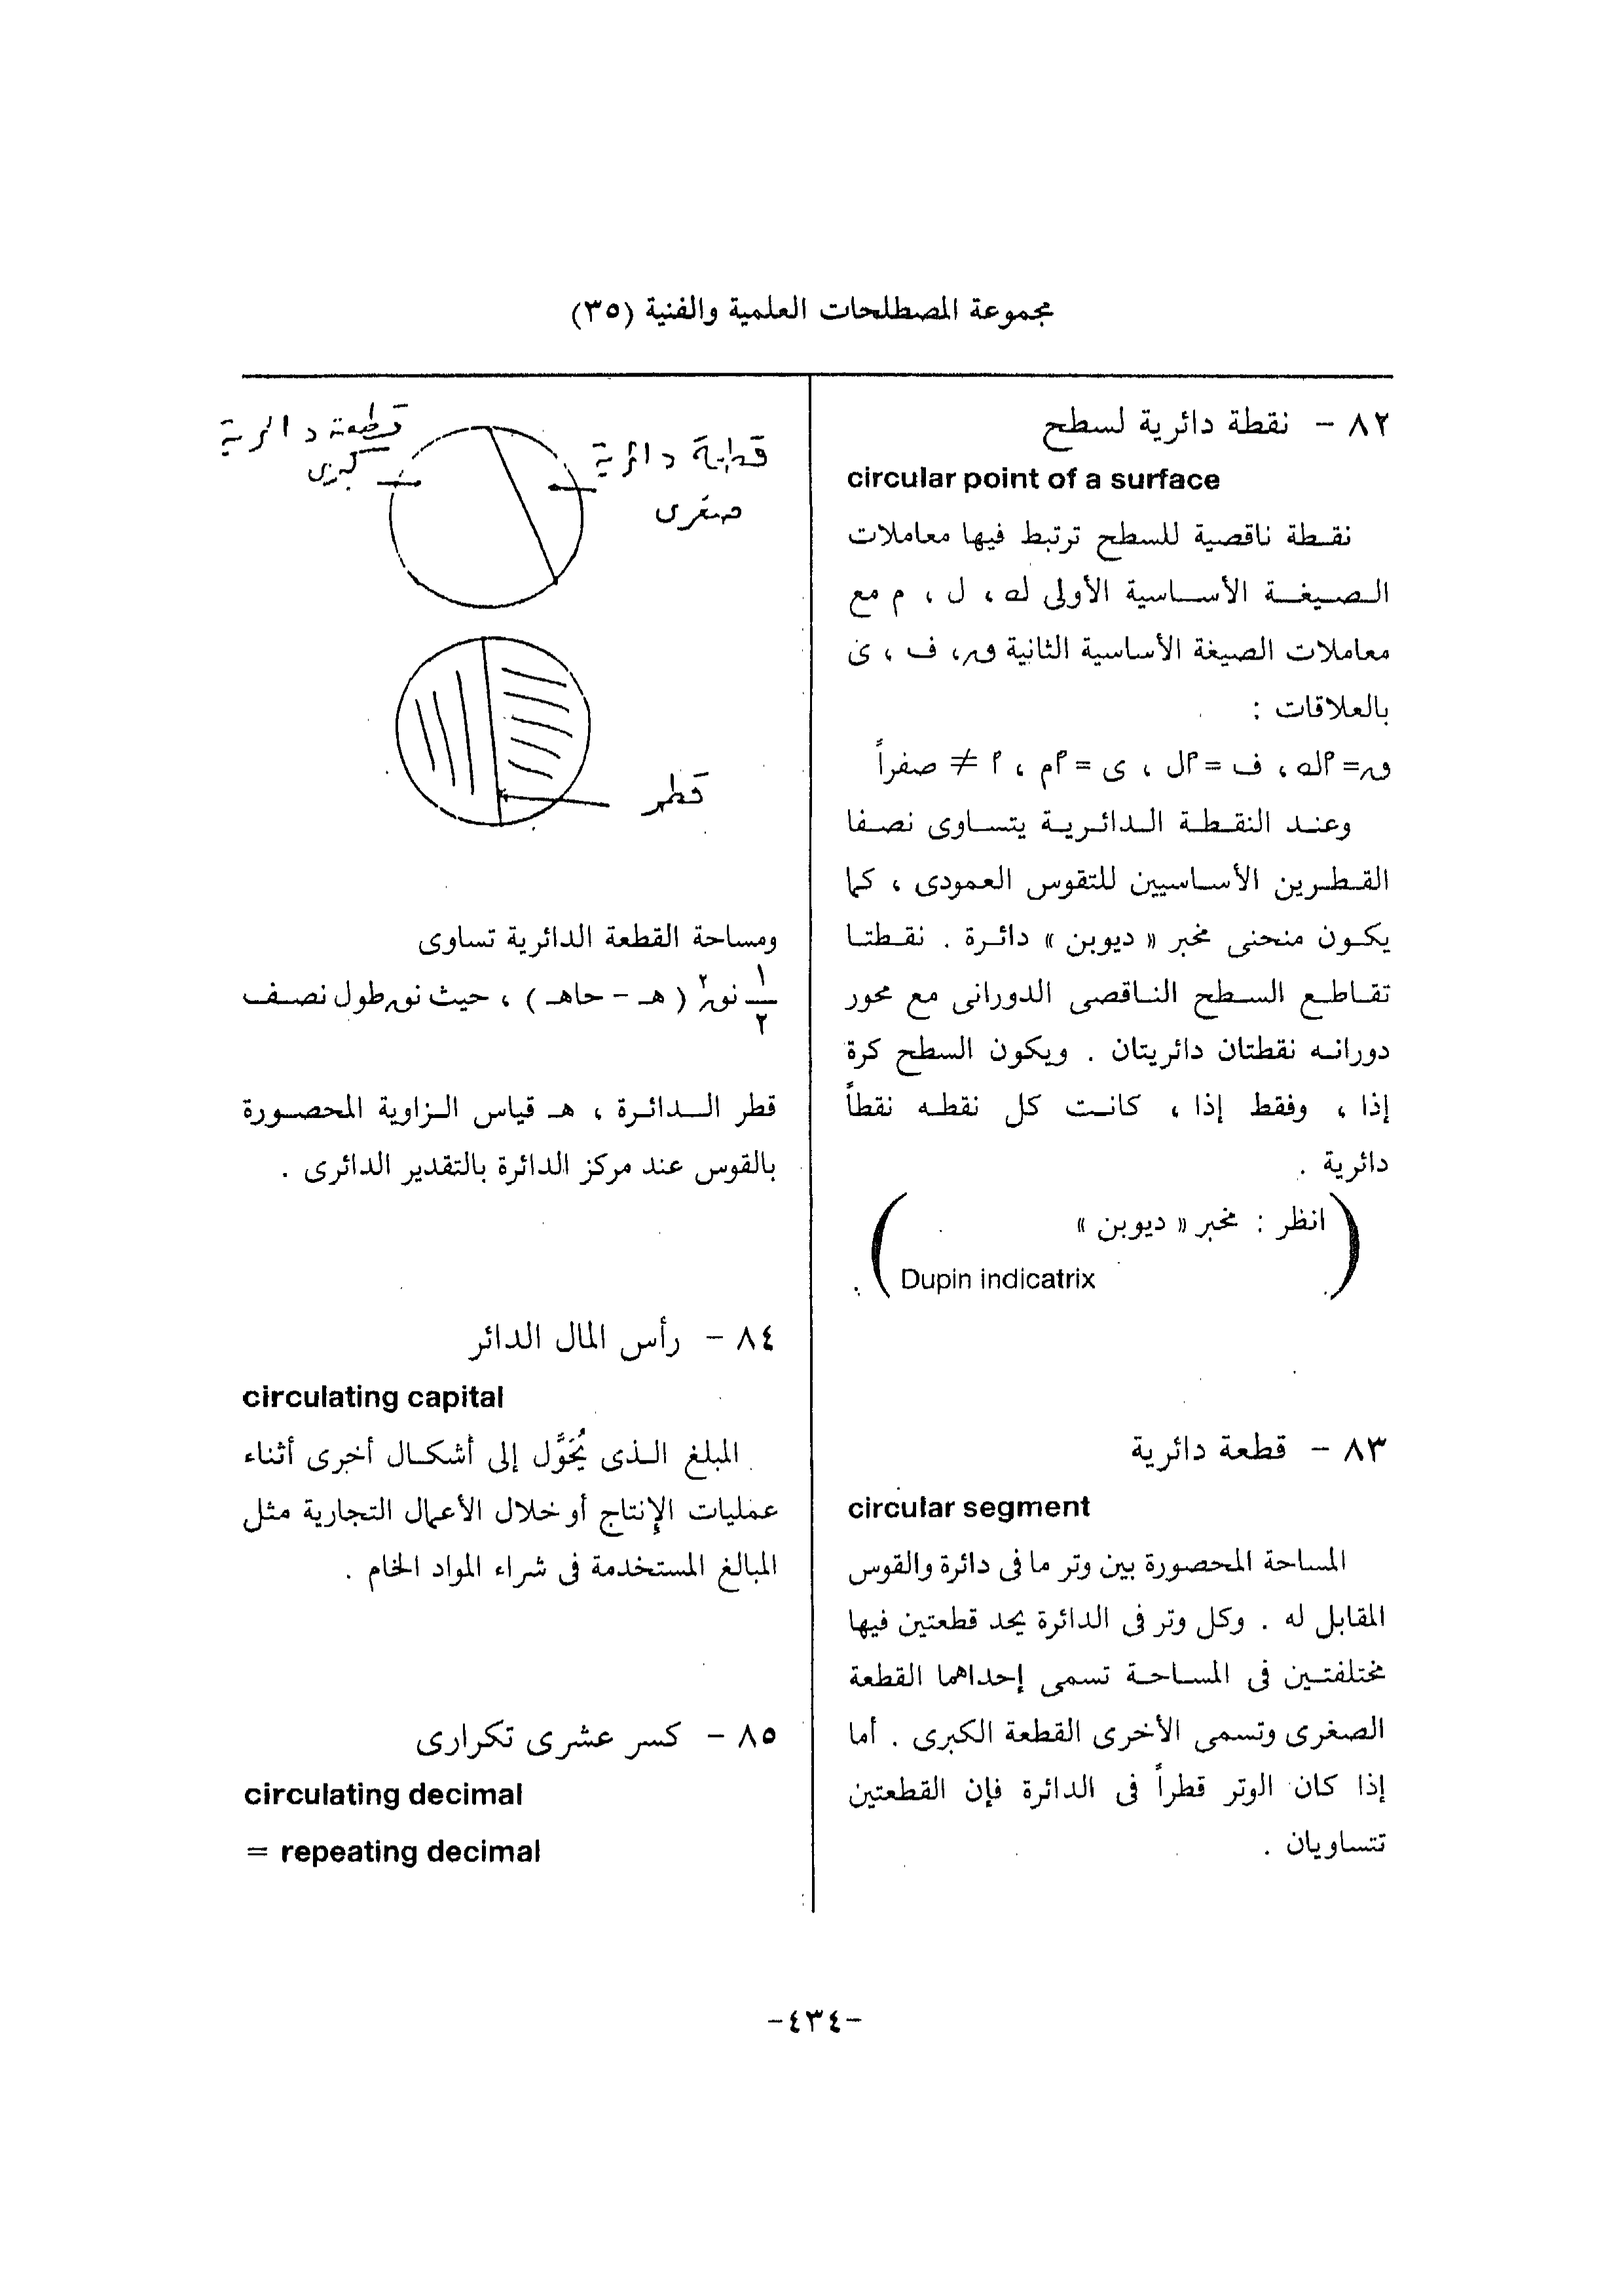 مجموعة المصطلحات العلمية والفنية (٣٥)
٨٢ - نقطة دائرية لسطح
circular point of a surface
نقطة ناقصية للسطح ترتبط فيها معاملات
الصيغة الأساسية الأولى له ، ل ، م مع
معاملات الصيغة الأساسية الثانية ور، ف ، ى
بالعلاقات :
ور= ٢له ، ف = ٢ل ، ى = ٢م ، ٢ ≠ صفراً
وعند النقطة الدائرية يتساوى نصفا
القطرين الأساسيين للتقوس العمودى ، كما
يكون منحنى مخبر « ديوبن » دائرة . نقطتا
تقاطع السطح الناقصى الدورانى مع محور
دورانه نقطتان دائريتان . ويكون السطح كرة
إذا ، وفقط إذا ، كانت كل نقطه نقطاً
دائرية .
( انظر : مخبر « ديوبن »
Dupin indicatrix ) .
٨٣ - قطعة دائرية
circular segment
المساحة المحصورة بين وتر ما فى دائرة والقوس
المقابل له . وكل وتر فى الدائرة يحد قطعتين فيها
مختلفتين فى المساحة تسمى إحداهما القطعة
الصغرى وتسمى الأخرى القطعة الكبرى . أما
إذا كان الوتر قطراً فى الدائرة فإن القطعتين
تتساويان .
قطعة دائرية
صغرى
قطعة دائرية
كبرى
قطر
ومساحة القطعة الدائرية تساوى
١/٢ نور٢ ( هـ - حاهـ ) ، حيث نور طول نصف
قطر الدائرة ، هـ قياس الزاوية المحصورة
بالقوس عند مركز الدائرة بالتقدير الدائرى .
٨٤ - رأس المال الدائر
circulating capital
المبلغ الذى يُحَوَّل إلى أشكال أخرى أثناء
عمليات الإنتاج أو خلال الأعمال التجارية مثل
المبالغ المستخدمة فى شراء المواد الخام .
٨٥ - كسر عشرى تكرارى
circulating decimal
= repeating decimal
-٤٣٤-